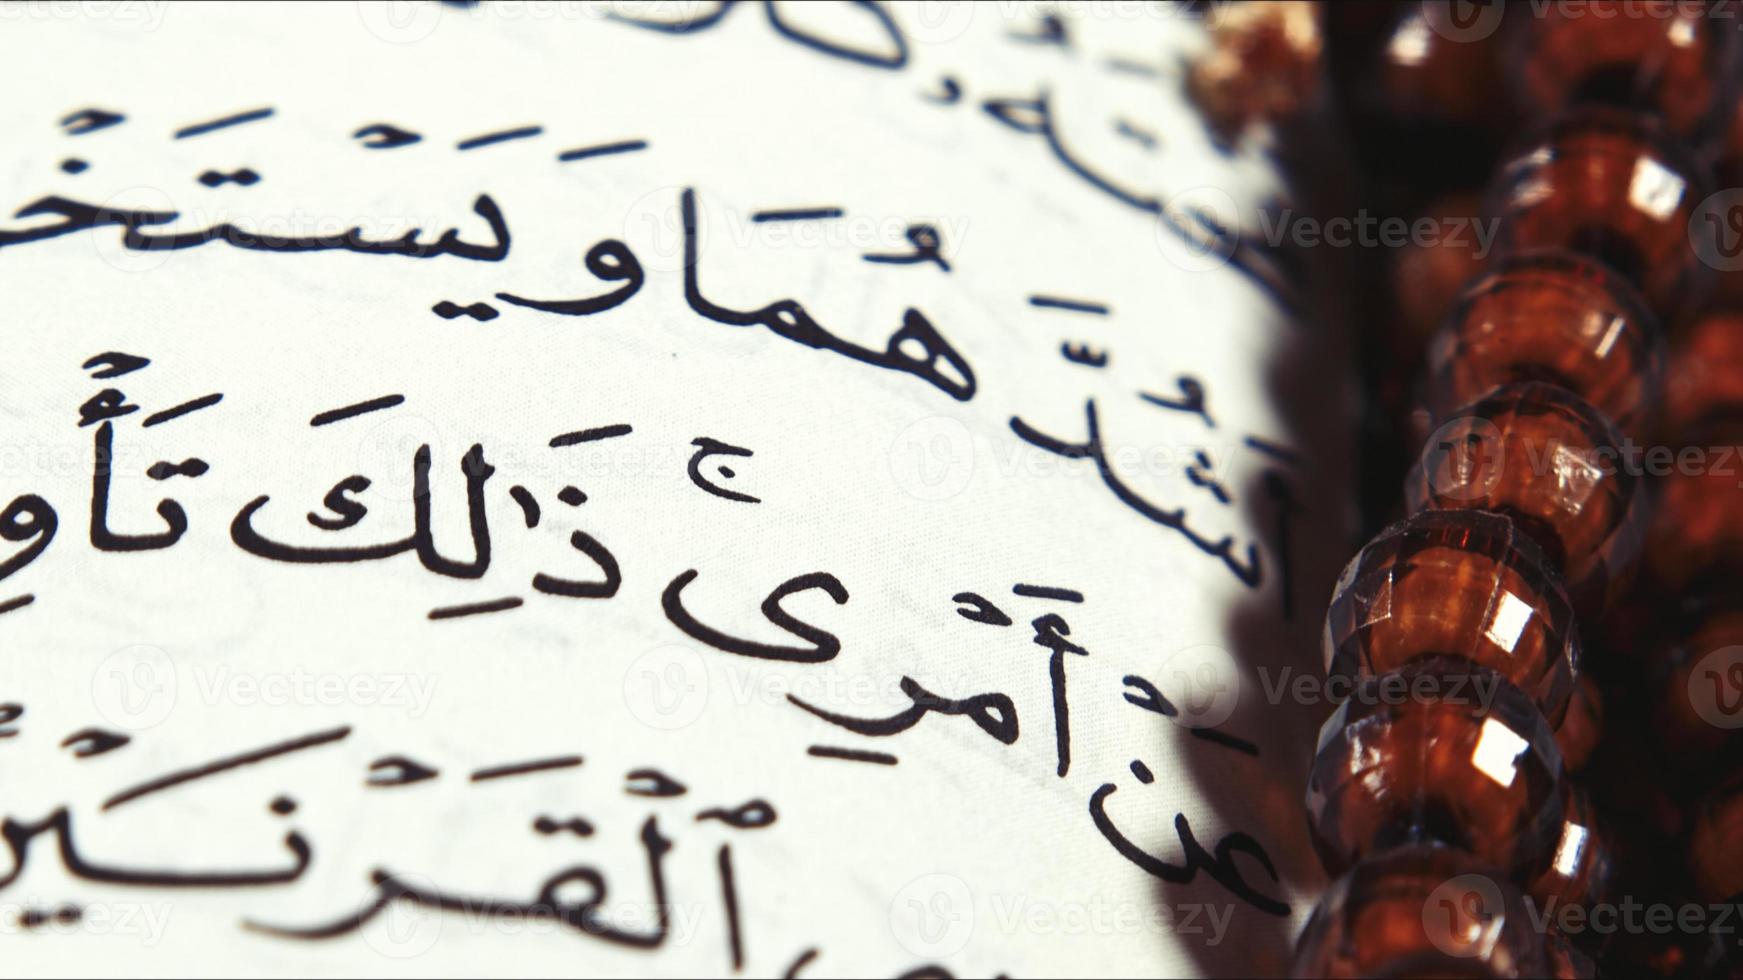 أَشُدَّهُمَا وَيَسْتَخْ
عَنْ أَمْرِى ۚ ذَٰلِكَ تَأْوِ
ٱلْقَرْنَيْ
Vecteezy